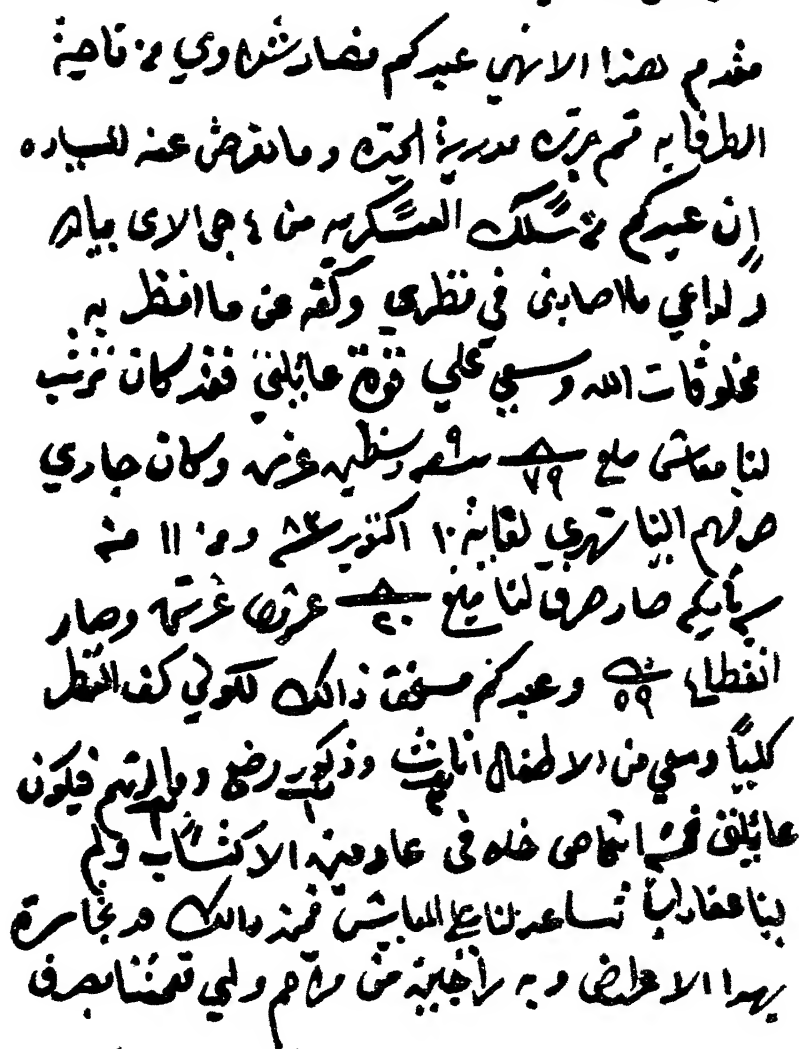 مقدم هذا الانهي عبدكم نصار شنراوي من ناحية
الطرفايه قسم مديرية الجيزه وما نعرض عنه للسياده
إن عبدكم من سلك العسكريه من ٤ جي الاى بياده
ولداعي ما اصابنى في نظري وكفه عن ما انظر به
مخلوقات الله وسعي علي قوة عائلتي فقد كان ترتب
لنا معاش مبلغ ٧٩ غرش وكان جاري
صرفهم الينا شهري لغاية ١٠ اكتوبر سنة ٨٣ ومن ١١ منه
صار صرف لنا مبلغ ٢٠ غرش وصار
انقطاع ٥٩ وعبدكم مستحق ذالك لكوني كف النظر
كلياً ومعي من الاطفال اناث ٣ وذكور ١ رضيع ووالدتهم فيكون
عائلتى خمسة اشخاص خلاف عادمين الاكتساب ولم
لينا عقارات تساعد لنا علي المعايش فمن ذالك قد تجاسرة
بهدا الاعراض وبه راجين من مراحم ولي نعمتنا بصرف